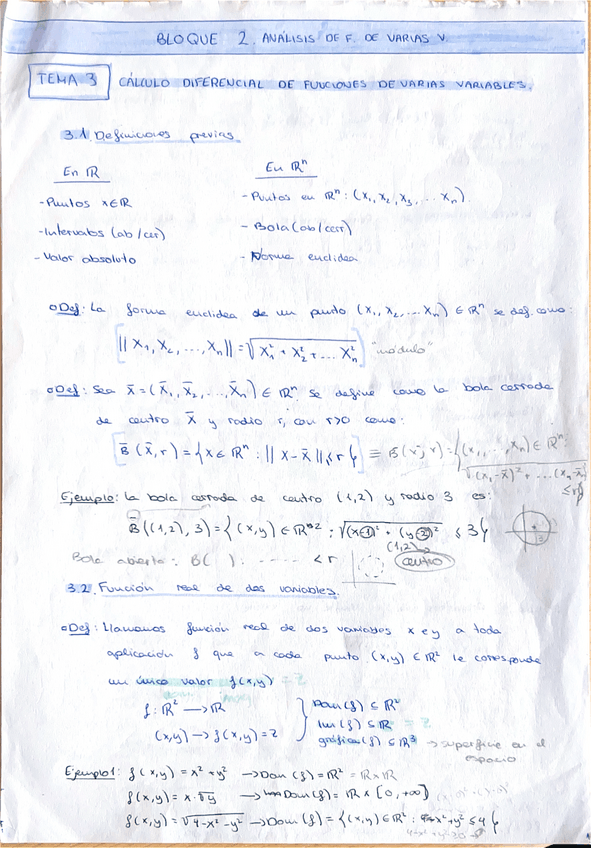 BLOQUE 2. ANÁLISIS DE F. DE VARIAS V.
TEMA 3 CÁLCULO DIFERENCIAL DE FUNCIONES DE VARIAS VARIABLES.
3.1. Definiciones previas.
En ℝ En ℝⁿ
- Puntos x∈ℝ - Puntos en ℝⁿ: (x₁, x₂, x₃, ... xₙ).
- Intervalos (ab/cer) - Bola (ab/cerr)
- Valor absoluto - Norma euclidea
Def: La forma euclidea de un punto (x₁, x₂, ... xₙ) ∈ ℝⁿ se def. como:
[||x₁, x₂, ..., xₙ|| = √(x₁² + x₂² + ... xₙ²)] "módulo"
Def: Sea x̄ = (x̄₁, x̄₂, ..., x̄ₙ) ∈ ℝⁿ. Se define como la bola cerrada
de centro x̄ y radio r, con r>0 como:
[B̄(x̄, r) = {x ∈ ℝⁿ : ||x - x̄|| ≤ r}] ≡ B(x̄, r) = {(x₁, ..., xₙ) ∈ ℝⁿ:
√(x₁ - x̄)² + ... (xₙ - x̄ₙ)
≤ r}
Ejemplo: la bola cerrada de centro (1,2) y radio 3 es:
B̄((1,2), 3) = {(x,y) ∈ ℝ² : √(x-1)² + (y-2)² ≤ 3}
(1,2)
Bola abierta: B( ): ...... < r centro
3.2. Función real de dos variables.
Def: Llamamos función real de dos variables x e y a toda
aplicación f que a cada punto (x,y) ∈ ℝ² le corresponde
un único valor f(x,y) = z
f: ℝ² → ℝ Dom(f) ⊆ ℝ²
(x,y) → f(x,y) = z Im(f) ⊆ ℝ = z
gráfica(f) ⊆ ℝ³ → superficie en el
espacio
Ejemplo1: f(x,y) = x² + y² → Dom(f) = ℝ² = ℝ x ℝ
f(x,y) = x·√y → Dom(f) = ℝ x [0, +∞)
f(x,y) = √(4-x²-y²) → Dom(f) = {(x,y) ∈ ℝ² : x²+y² ≤ 4}
4-x²-y²≥0